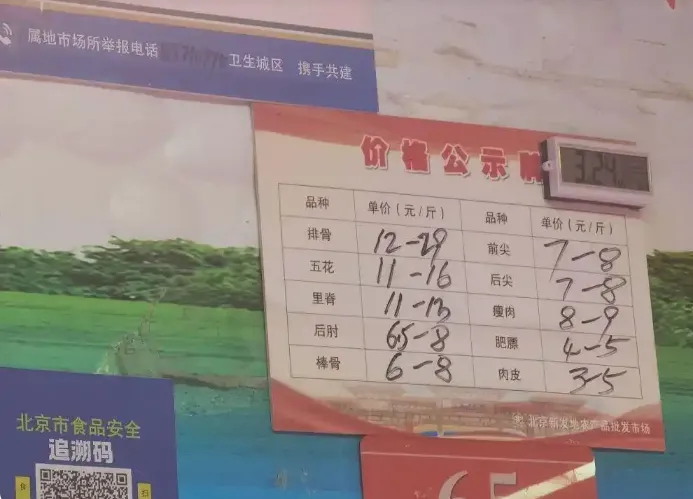 属地市场所举报电话
卫生城区 携手共建
价格公示牌
3:24
品种 单价（元/斤） 品种 单价（元/斤）
排骨 12-29 前尖 7-8
五花 11-16 后尖 7-8
里脊 11-13 瘦肉 8-9
后肘 6.5-8 肥膘 4-5
棒骨 6-8 肉皮 3-5
北京新发地农产品批发市场
北京市食品安全
追溯码
65